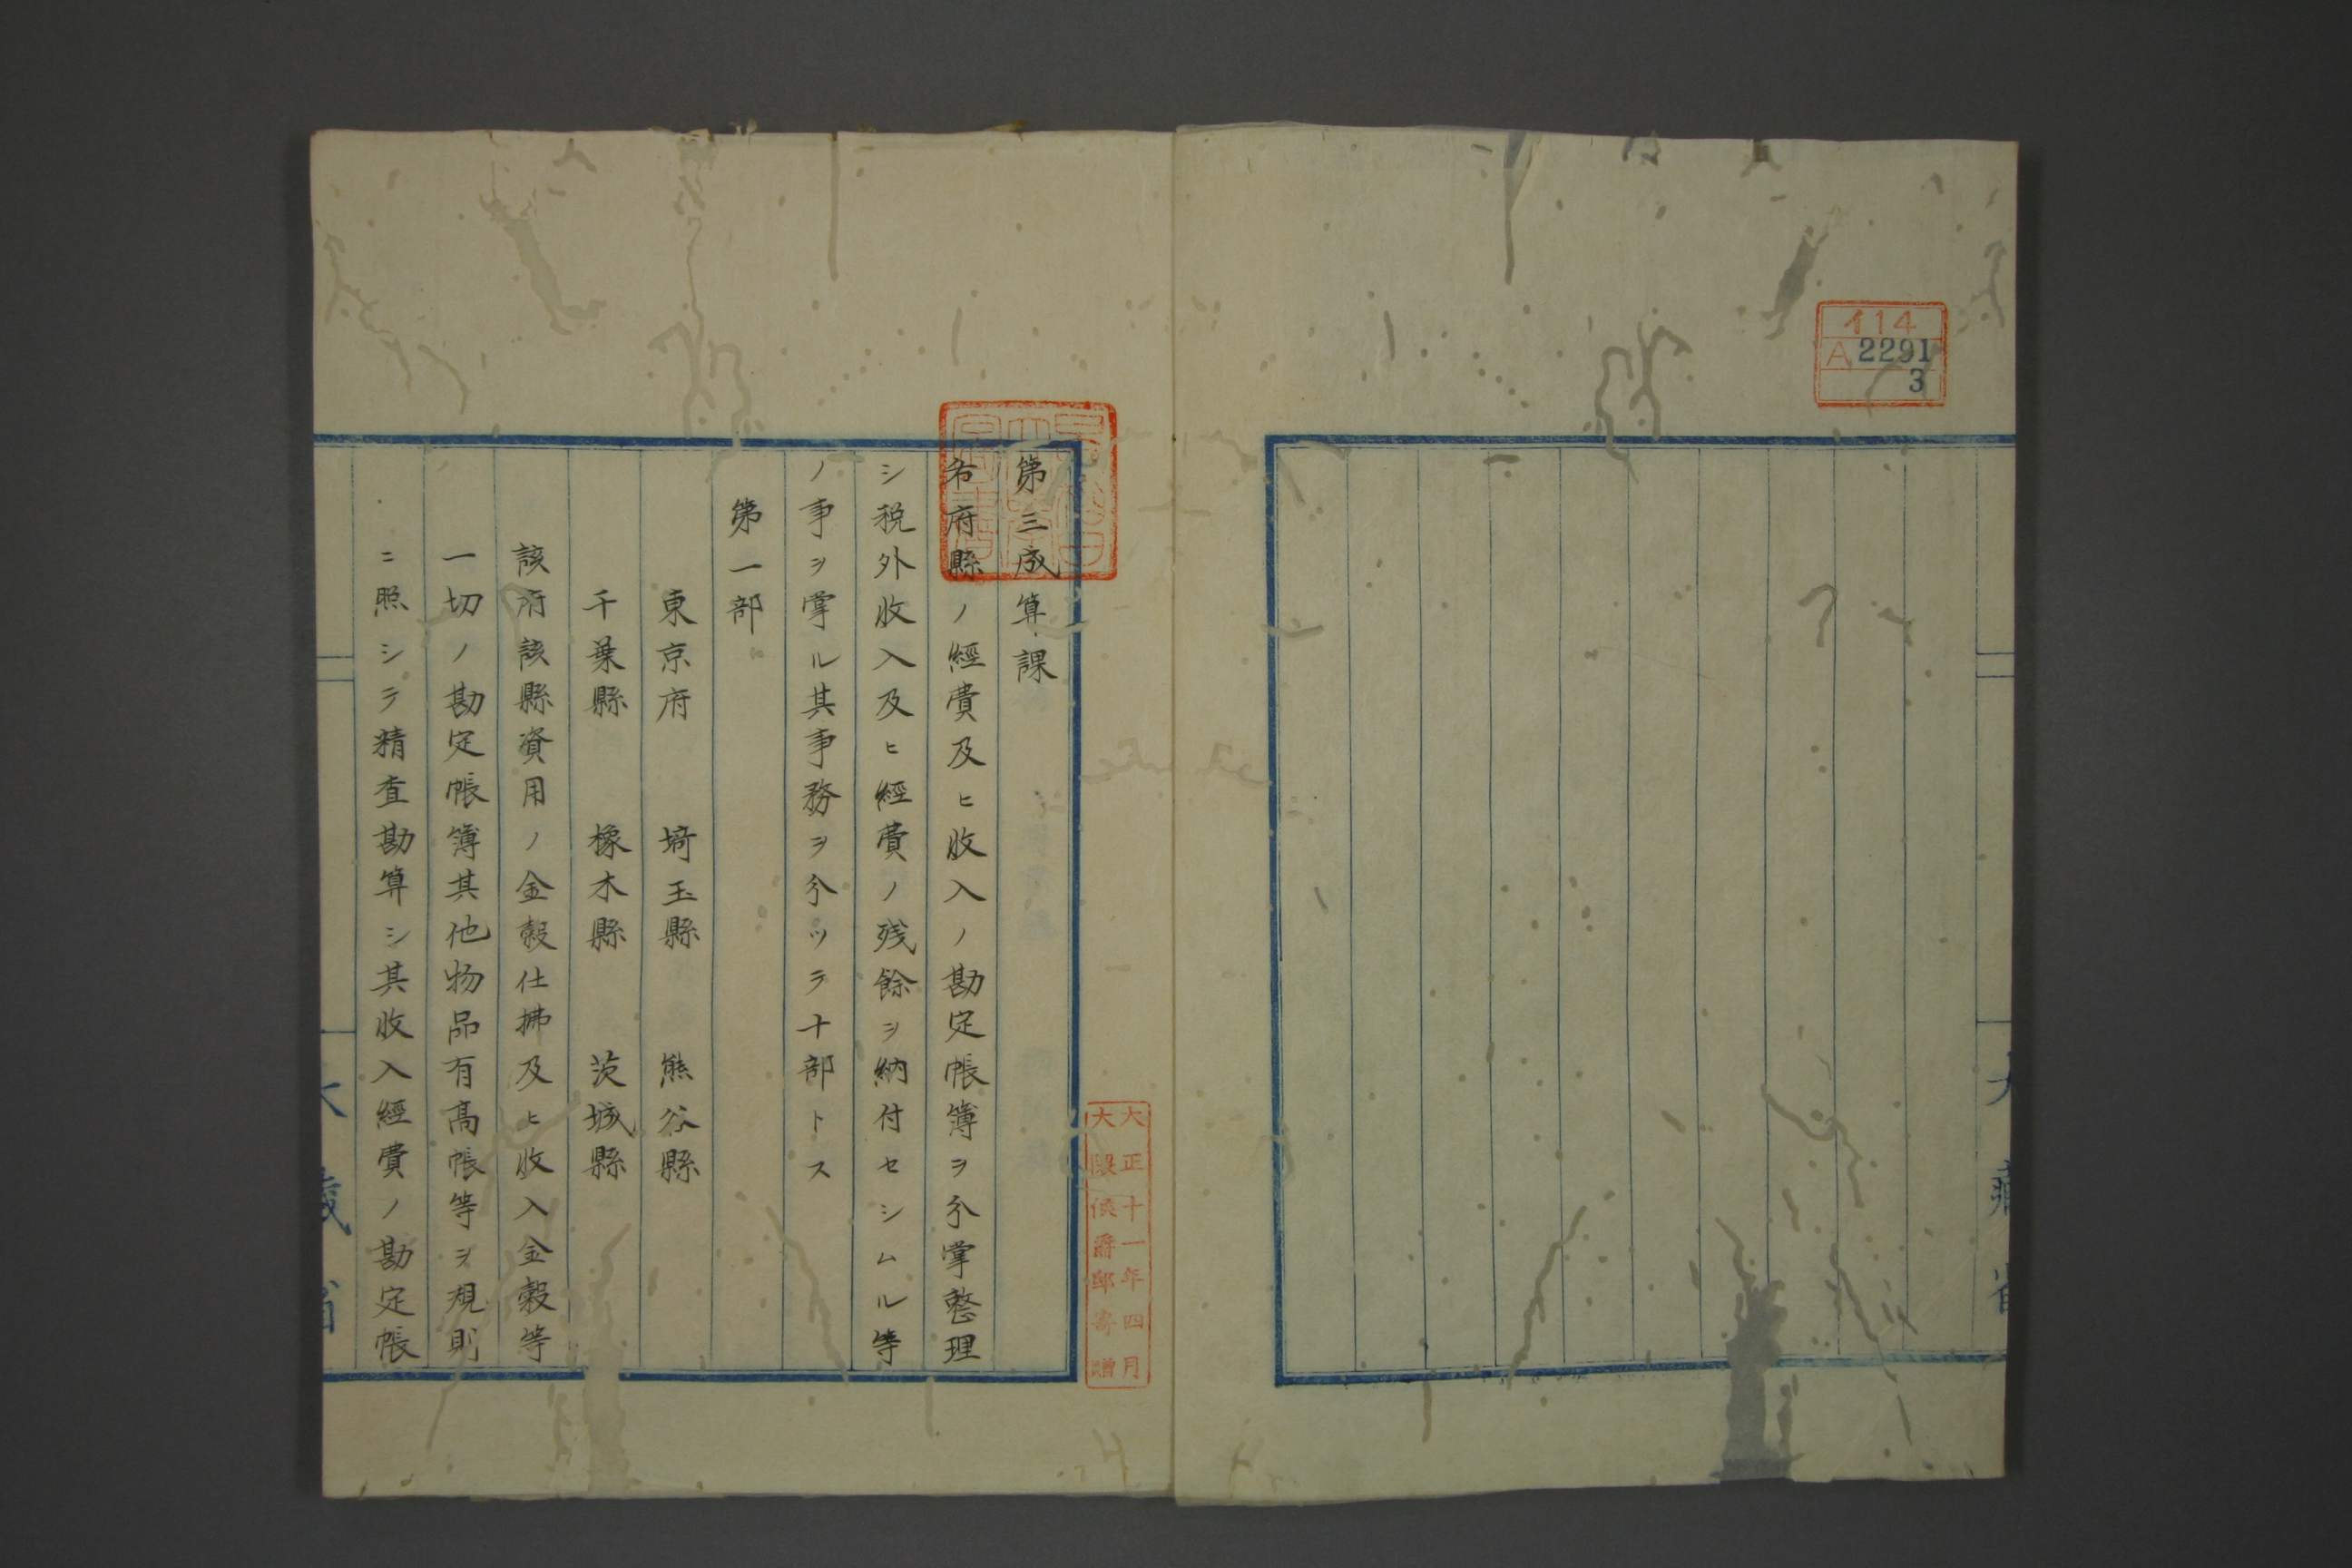 イ14
A 2291
3
大藏省
第三成算課
各府縣ノ經費及ヒ收入ノ勘定帳簿ヲ分掌整理
シ税外收入及ヒ經費ノ残餘ヲ納付セシムル等
ノ事ヲ掌ル其事務ヲ分ツテ十部トス
第一部
東京府 埼玉縣 熊谷縣
千葉縣 橡木縣 茨城縣
該府該縣資用ノ金穀仕拂及ヒ收入金穀等
一切ノ勘定帳簿其他物品有高帳等ヲ規則
ニ照シテ精査勘算シ其收入經費ノ勘定帳
大藏省
大正十一年四月
大隈侯爵邸寄贈